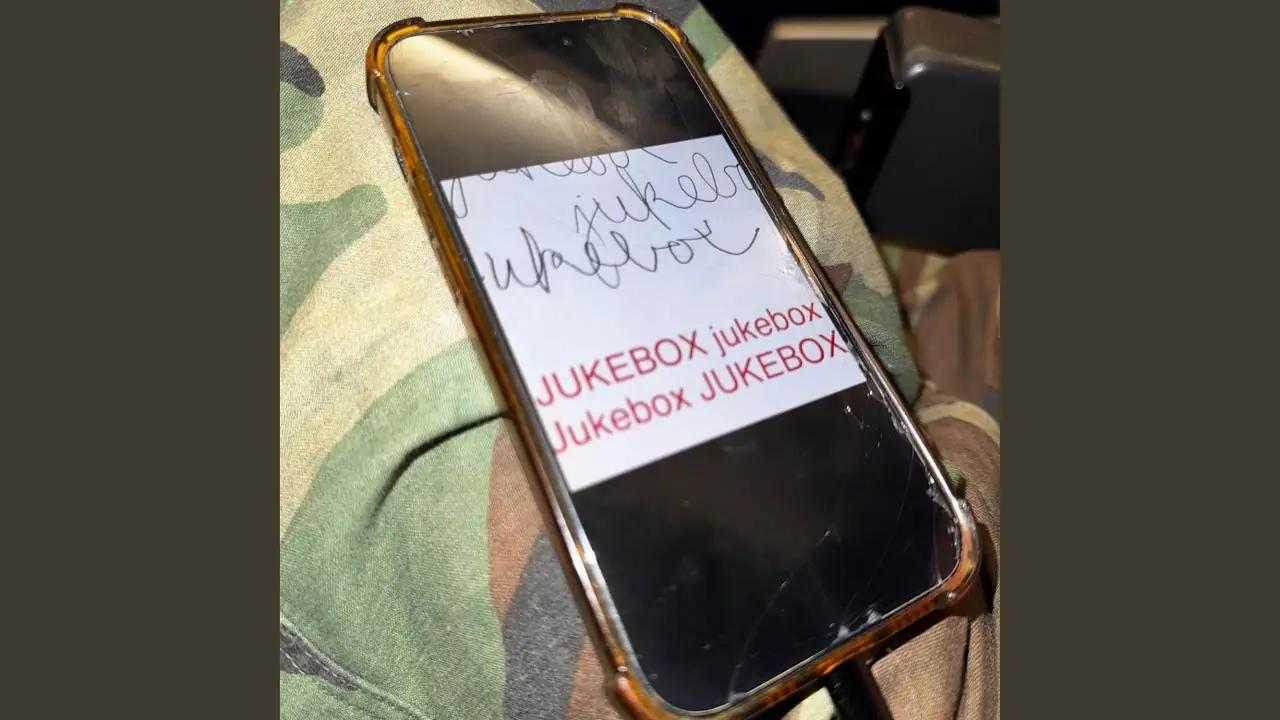 jukebox
jukebo
ukebox
JUKEBOX jukebox
Jukebox JUKEBOX